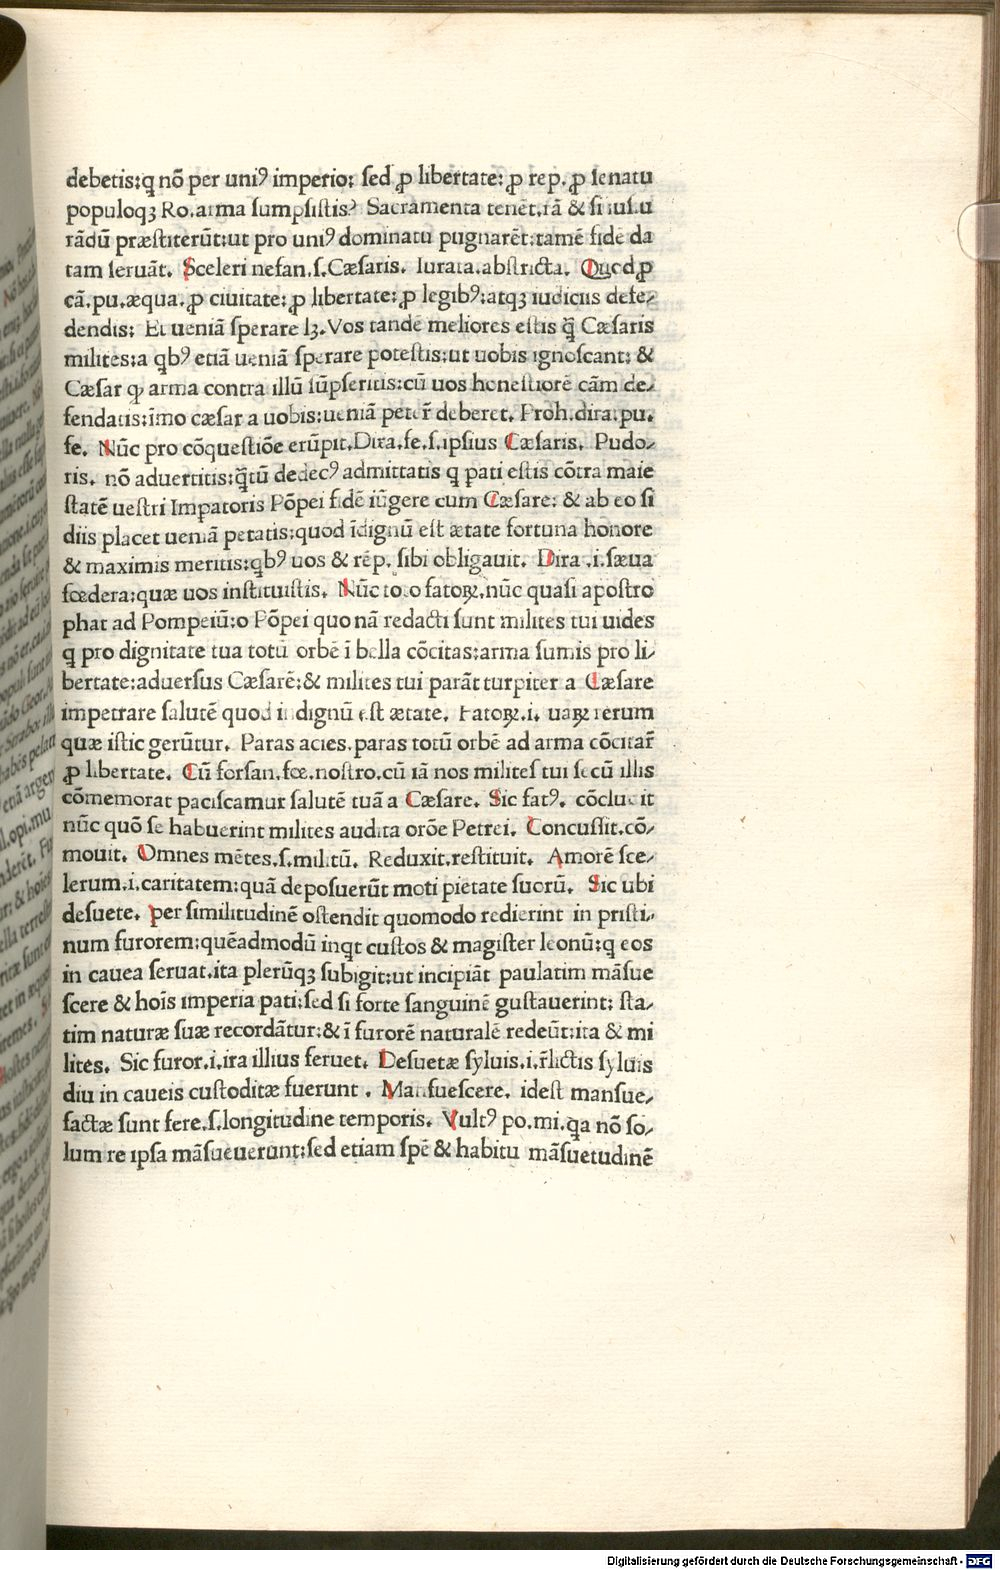 debetis:q̃ nõ per uniꝰ imperio: sed ꝓ libertate: ꝓ rep. ꝓ senatu
populoqꝫ Ro.arma sumpsistis? Sacramenta tenẽt.rã & si ius.iu
rãdũ præstiterũt:ut pro uniꝰ dominatu pugnarẽt:tamẽ fidẽ da
tam seruãt. Sceleri nefan.s.Cæsaris. Iurata.abstricta. Quod ꝓ
cã.pu.æqua.ꝓ ciuitate:ꝓ libertate:ꝓ legibꝰ:atqꝫ iudiciis defe⸗
dendis: Et ueniã sperare lꝫ.Vos tandẽ meliores estis q̃ Cæsaris
milites:a qbꝰ etiã ueniã sperare potestis:ut uobis ignoscant: &
Cæsar ꝙ arma contra illũ sũpseritis:cũ uos honestiorẽ cãm de⸗
fendatis:ĩmo cæsar a uobis:ueniã peter̃ deberet. Proh.dira.pu.
fe. Nũc pro cõquestiõe erũpit.Dira.fe.s.ipsius Cæsaris. Pudo⸗
ris. nõ aduertitis:q̃tũ dedecꝰ admittatis q pati estis cõtra maie
statẽ uestri Impatoris Põpei fidẽ iũgere cum Cæsare: & ab eo si
diis placet ueniã petatis:quod ĩdignũ est ætate fortuna honore
& maximis meritis:qbꝰ uos & rẽp. sibi obligauit. Dira .i.sæua
fœdera:quæ uos instituistis. Nũc io.o fatoꝝ.nũc quasi apostro
phat ad Pompeiũ:o Põpei quo nã redacti sunt milites tui uides
q̃ pro dignitate tua totũ orbẽ ĩ bella cõcitas:arma sumis pro li⸗
bertate:aduersus Cæsarẽ:& milites tui parãt turpiter a Cæsare
impetrare salutẽ quod indignũ est ætate. Fatoꝝ.i. uaꝝ rerum
quæ istic gerũtur. Paras acies.paras totũ orbẽ ad arma cõcitar̃
ꝓ libertate. Cũ forsan.fœ.nostro.cũ iã nos milites tui secũ illis
cõmemorat paciscamur salutẽ tuã a Cæsare. Sic fatꝰ. cõcluit
nũc quõ se habuerint milites audita orõe Petrei. Concussit.cõ⸗
mouit. Omnes mẽtes.s.militũ. Reduxit.restituit. Amorẽ sce⸗
lerum.i.caritatem:quã deposuerũt moti pietate suorũ. Sic ubi
desuete. per similitudinẽ ostendit quomodo redierint in pristi⸗
num furorem:quẽadmodũ inqt custos & magister leonũ:q eos
in cauea seruat.ita plerũqꝫ subigit:ut incipiãt paulatim mãsue
scere & hoĩs imperia pati:sed si forte sanguinẽ gustauerint: sta⸗
tim naturæ suæ recordãtur:& ĩ furorẽ naturalẽ redeũt:ita & mi
lites. Sic furor.i.ira illius feruet. Desuetæ syluis.i.r̃lictis syluis
diu in caueis custoditæ fuerunt . Mansuescere. idest mansue⸗
factæ sunt fere.s.longitudine temporis. Vultꝰ po.mi.qa nõ so⸗
lum re ipsa mãsueuerunt:sed etiam spẽ & habitu mãsuetudinẽ
Digitalisierung gefördert durch die Deutsche Forschungsgemeinschaft - DFG